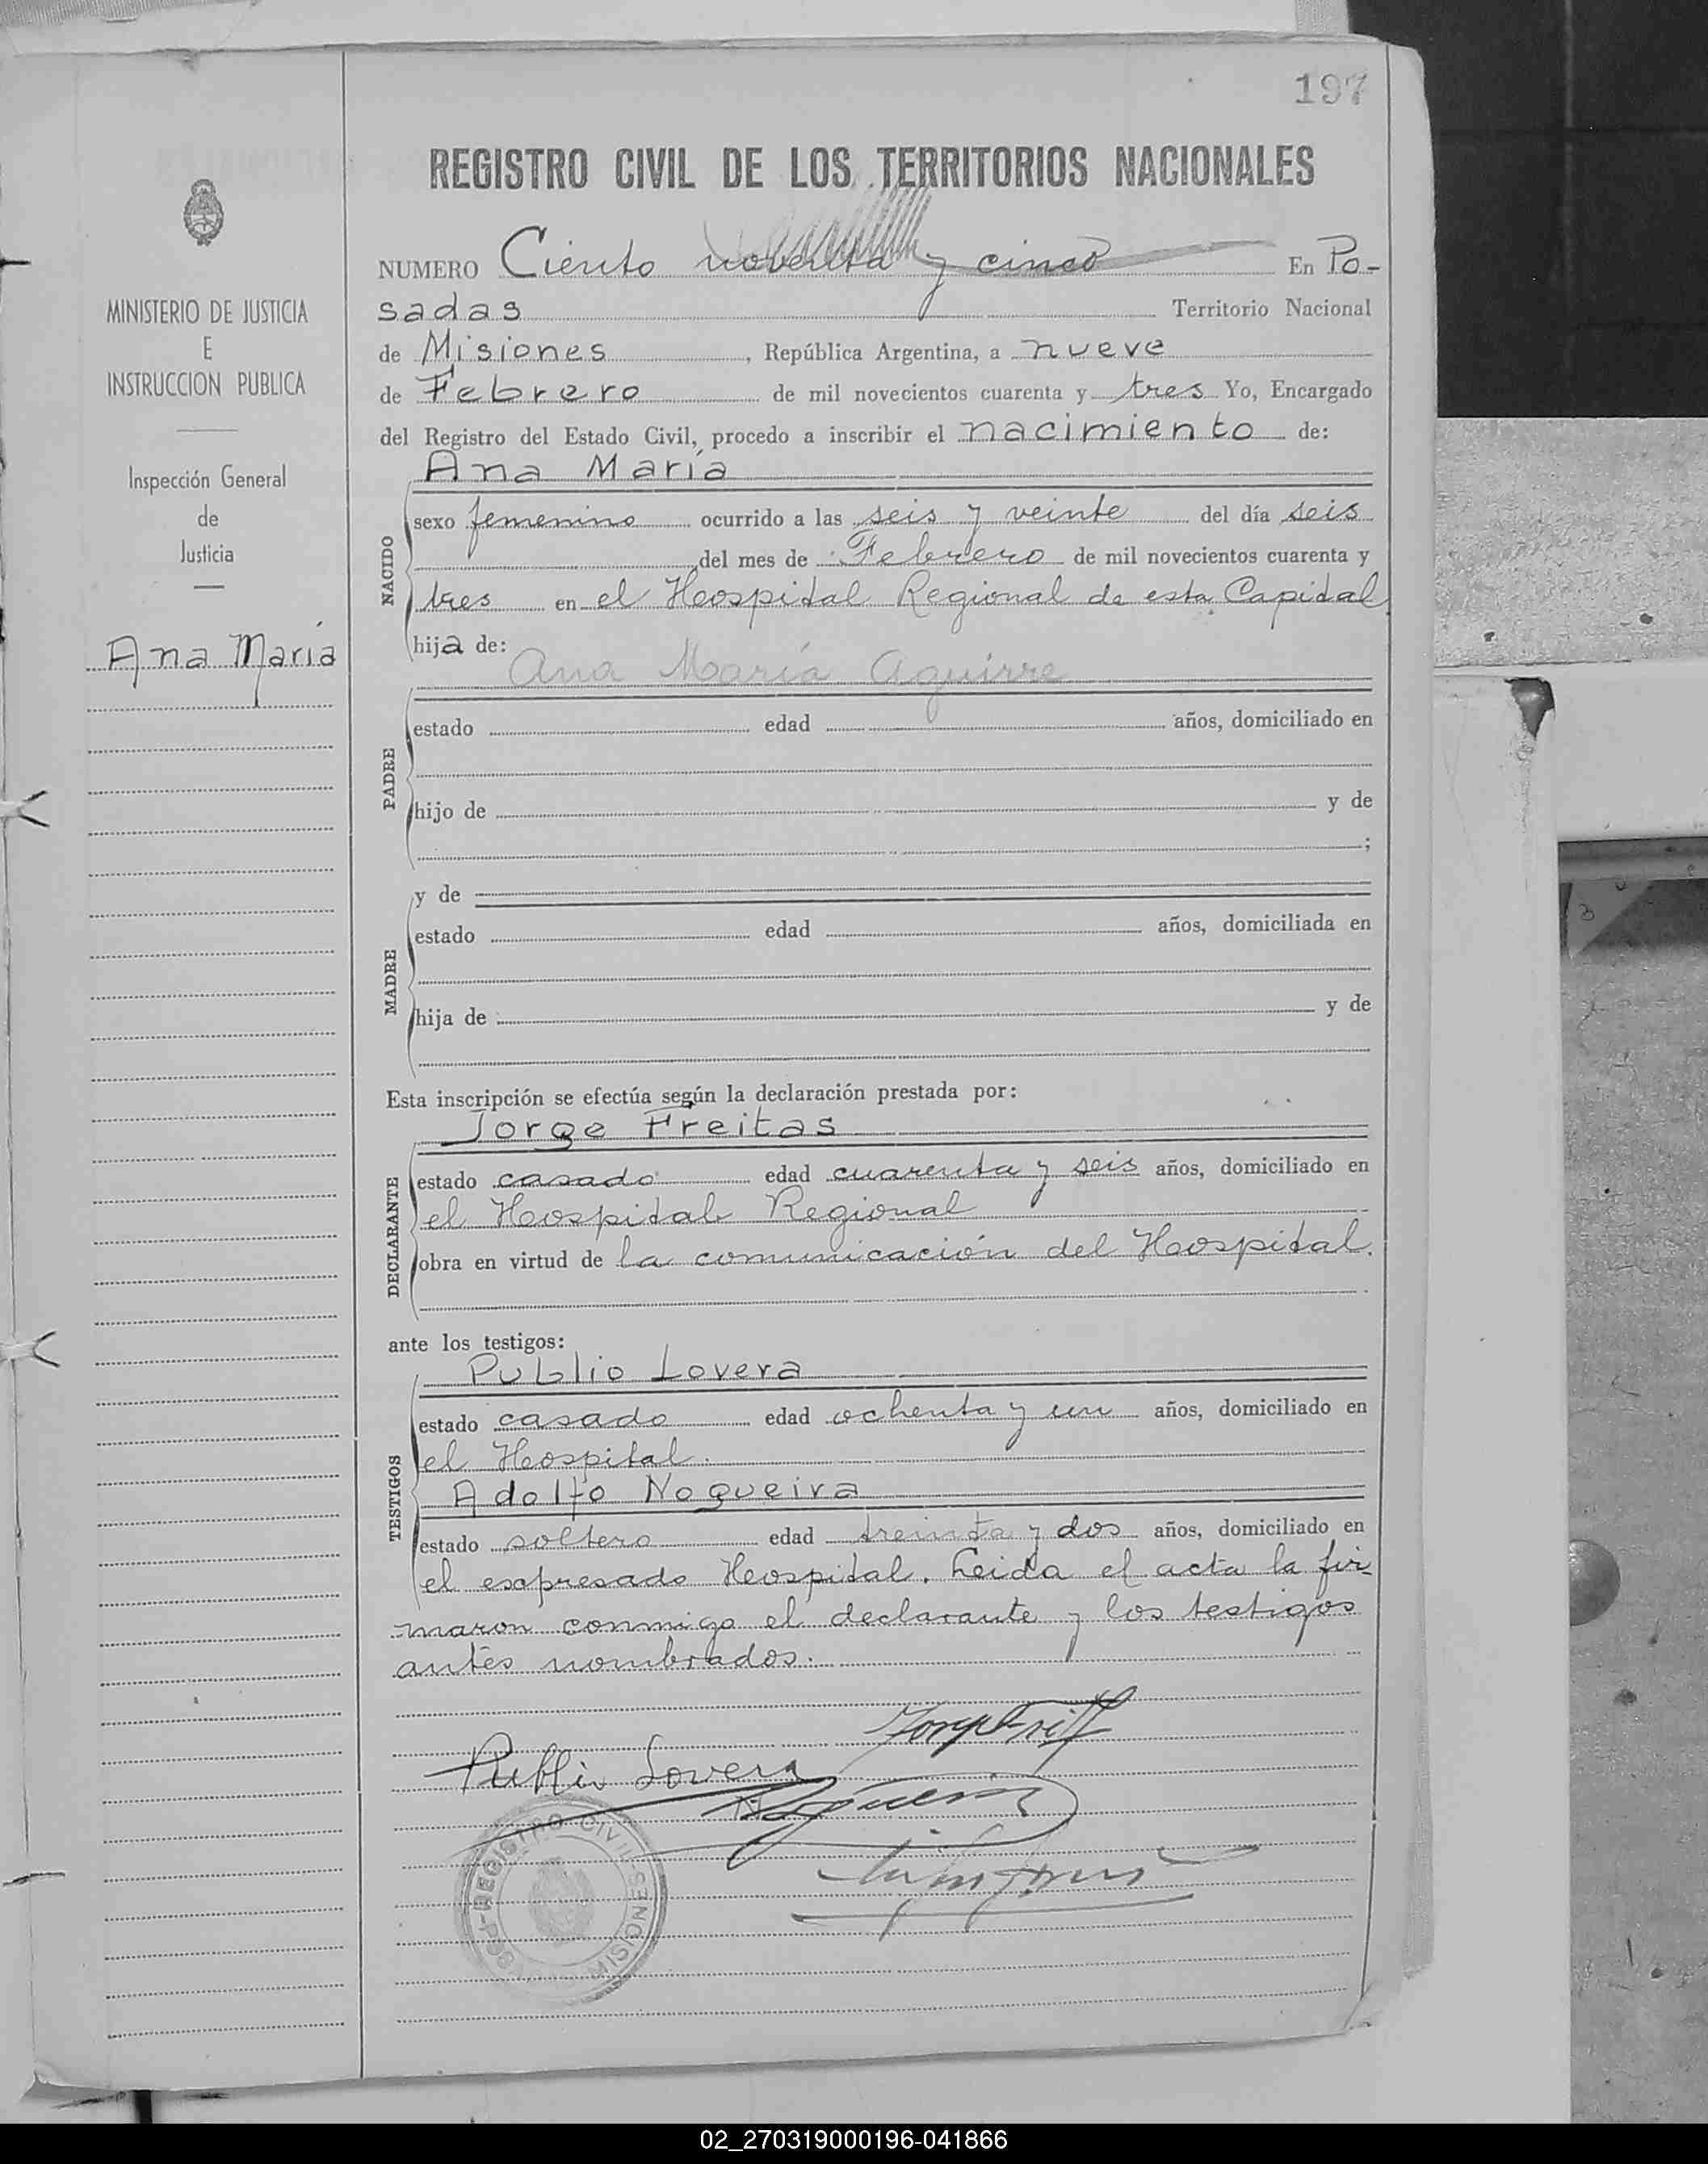 197
REGISTRO CIVIL DE LOS TERRITORIOS NACIONALES
NUMERO Ciento noventa y cinco En Po-
sadas Territorio Nacional
de Misiones, República Argentina, a nueve
de Febrero de mil novecientos cuarenta y tres Yo, Encargado
del Registro del Estado Civil, procedo a inscribir el nacimiento de:
Ana María
NACIDO
sexo femenino ocurrido a las seis y veinte del día seis
del mes de Febrero de mil novecientos cuarenta y
tres en el Hospital Regional de esta Capital
hija de:
Ana María Aguirre
PADRE
estado edad años, domiciliado en
hijo de y de
;
MADRE
y de
estado edad años, domiciliada en
hija de y de
Esta inscripción se efectúa según la declaración prestada por:
Jorge Freitas
DECLARANTE
estado casado edad cuarenta y seis años, domiciliado en
el Hospital Regional
obra en virtud de la comunicación del Hospital.
ante los testigos:
Publio Lovera
TESTIGOS
estado casado edad ochenta y un años, domiciliado en
el Hospital.
Adolfo Nogueira
estado soltero edad treinta y dos años, domiciliado en
el expresado Hospital. Leida el acta la fir-
maron conmigo el declarante y los testigos
antes nombrados.
Publio Lovera
Nogueira
REGISTRO CIVIL
MISIONES
MINISTERIO DE JUSTICIA
E
INSTRUCCION PUBLICA
Inspección General
de
Justicia
Ana María
02_270319000196-041866